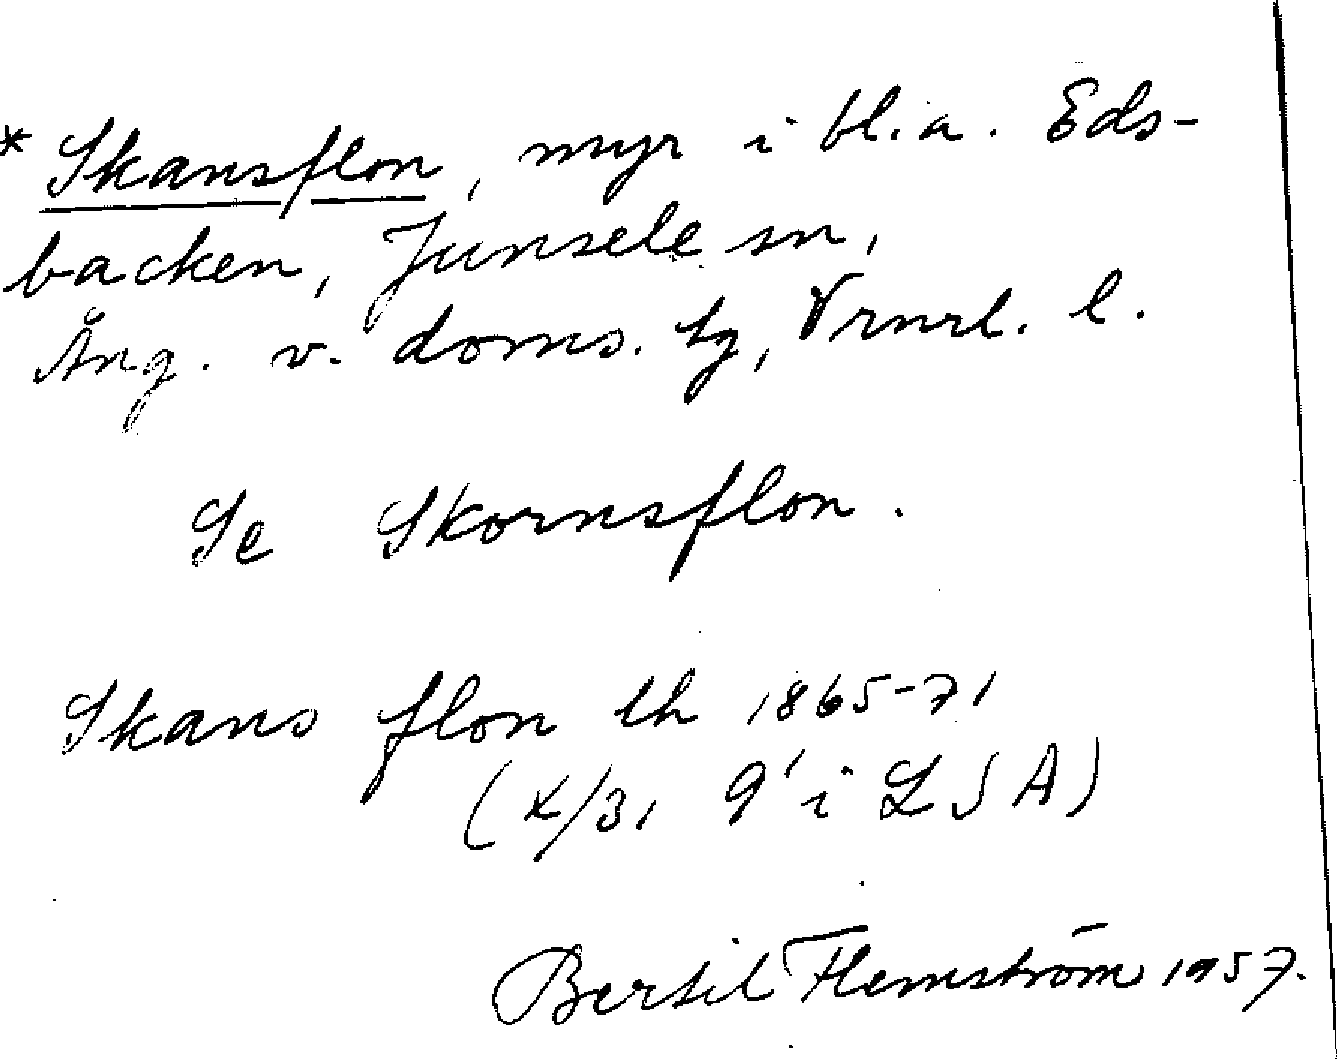 * Skansflon, myr i bl.a. Eds-
backen, Junsele sn,
Ång. v. doms. lg, Vrnrl. l.
Se Skornsflon.
Skans flon lh 1865-71
(K/31 9' i LSA)
Bertil Flemström 1957.